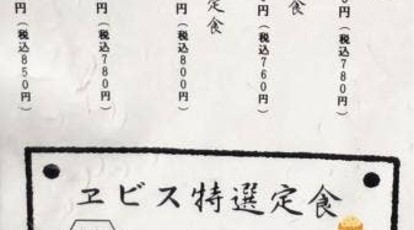 円（税込780円）
食
円（税込760円）
定食
円（税込800円）
円（税込780円）
円（税込850円）
ヱビス特選定食